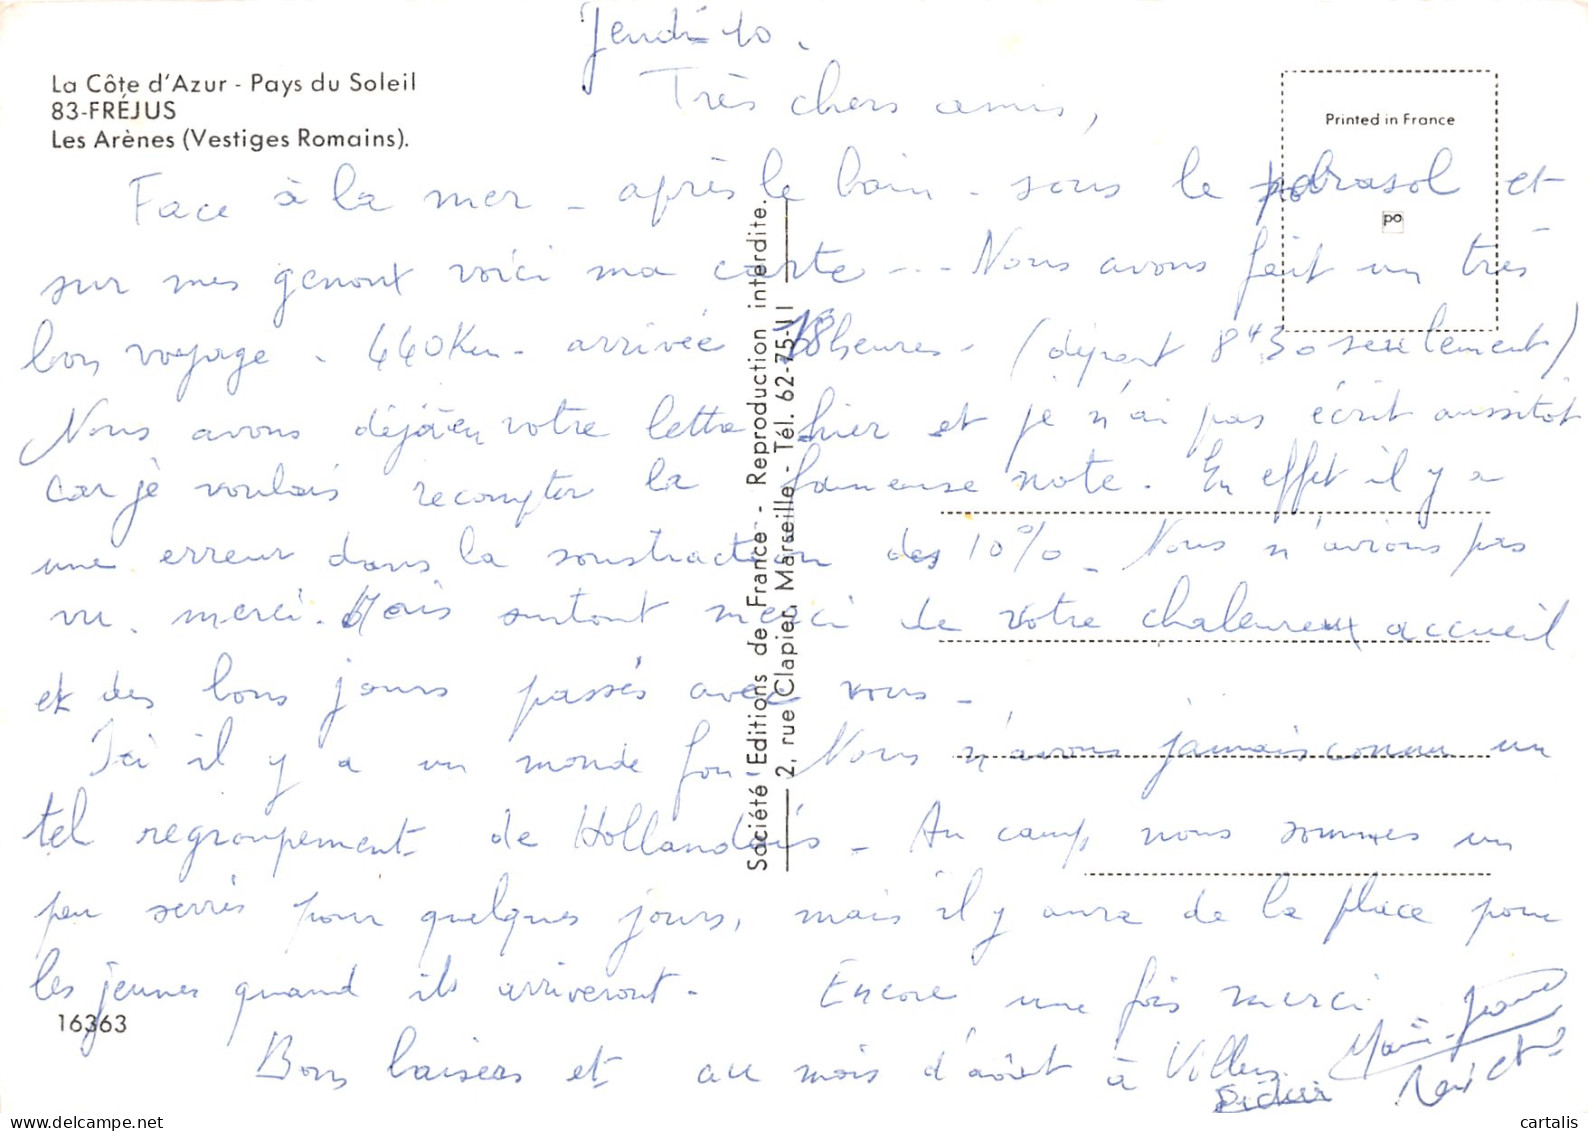 Jeudi 10.
La Côte d'Azur - Pays du Soleil
83-FRÉJUS
Les Arènes (Vestiges Romains).
Printed in France
po
Très chers amis,
Face à la mer - après le bain - sous le parasol et
sur mes genoux voici ma carte... Nous avons fait un très
bon voyage - 440 Km - arrivée heures - (départ 8H30 seulement)
Nous avons déjà eu votre lettre hier et je n'ai pas écrit aussitôt
car je voulais recompter la fameuse note. En effet il y a
une erreur dans la soustraction des 10% - Nous n'avions pas
vu. merci. Mais surtout merci de votre chaleureux accueil
et des bons jours passés avec vous -
Ici il y a un monde fou Nous n'avons jamais connu un
tel regroupement de Hollandais - Au camp, nous sommes un
peu serrés pour quelques jours, mais il y aura de la place pour
les jeunes quand ils arriveront - Encore une fois merci
Bons baisers et au mois d'août à Villers
Marie-Jeanne
16363
Société Editions de France - Reproduction interdite.
2, rue Clapier, Marseille - Tél. 62-75-11
cartalis